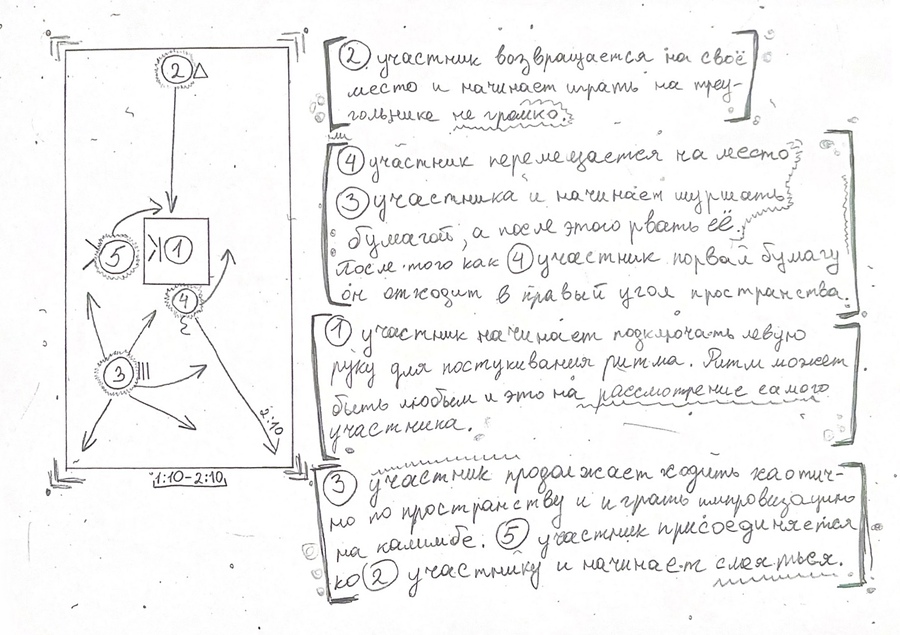 2 △
5
1
4
3
2:10
1:10-2:10
② участник возвращается на своё
место и начинает играть на треу-
гольнике не громко.
④ участник перемещается на место
③ участника и начинает шуршать
бумагой, а после этого рвать её.
После того как ④ участник порвал бумагу
он отходит в правый угол пространства.
① участник начинает подключать левую
руку для постукивания ритма. Ритм может
быть любым и это на рассмотрение самого
участника.
③ участник продолжает ходить хаотич-
но по пространству и играть импровизацию
на калимбе. ⑤ участник присоединяется
ко ② участнику и начинает слояться.